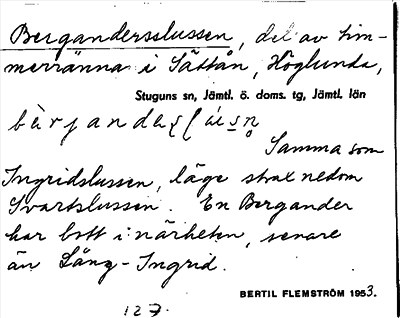 Bergandersslussen, del av tim-
merränna i Sättån, Höglunda,
Stuguns sn, Jämtl. ö. doms. tg, Jämtl. län
Samma som
Ingridslussen, läge strax nedom
Svartslussen. En Bergander
har bott i närheten, senare
än Lång-Ingrid.
BERTIL FLEMSTRÖM 1953.
127.